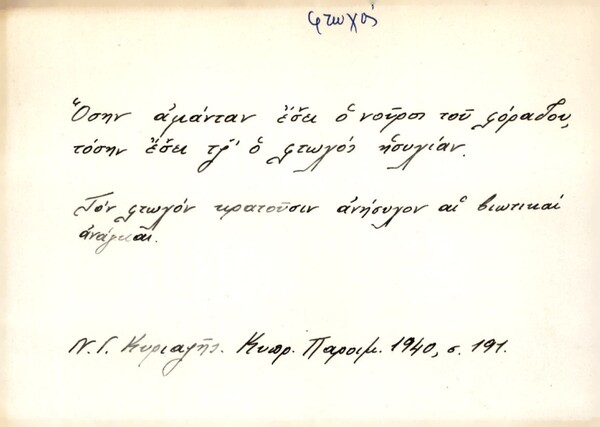 φτωχός
Ὅσην ἀμάνταν ἔσει ὁ νοῦρος τοῦ γάρου,
τόσην ἔσει τζ̌' ὁ φτωχός ἡσυχίαν.
Τόν φτωχόν κρατοῦσιν ἀνήσυχον αἱ βιωτικαί
ἀνάγκαι.
Ν. Γ. Κυριαζῆς. Κυπρ. Παροιμ. 1940, σ. 191.